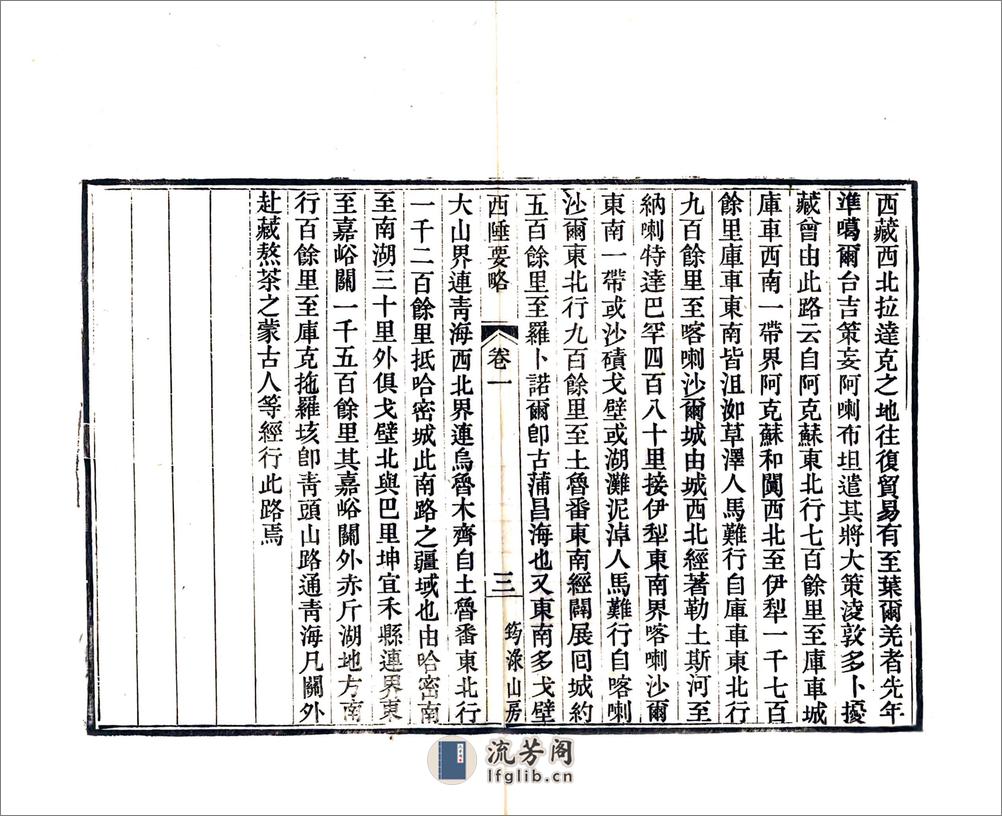 西藏西北拉達克之地往復貿易有至葉爾羌者先年
準噶爾台吉策妄阿喇布坦遣其將大策淩敦多卜擾
藏曾由此路云自阿克蘇東北行七百餘里至庫車城
庫車西南一帶界阿克蘇和闐西北至伊犁一千七百
餘里庫車東南皆沮洳草澤人馬難行自庫車東北行
九百餘里至喀喇沙爾城由城西北經著勒土斯河至
納喇特達巴罕四百八十里接伊犁東南界喀喇沙爾
東南一帶或沙磧戈壁或湖灘泥淖人馬難行自喀喇
沙爾東北行九百餘里至土魯番東南經闢展囘城約
五百餘里至羅卜諾爾卽古蒲昌海也又東南多戈壁
西陲要略 卷一 三 筠淥山房
大山界連靑海西北界連烏魯木齊自土魯番東北行
一千二百餘里抵哈密城此南路之疆域也由哈密南
至南湖三十里外俱戈壁北與巴里坤宜禾縣連界東
至嘉峪關一千五百餘里其嘉峪關外赤斤湖地方南
行百餘里至庫克拖羅垓卽靑頭山路通靑海凡關外
赴藏熬茶之蒙古人等經行此路焉
流芳阁
lfglib.cn